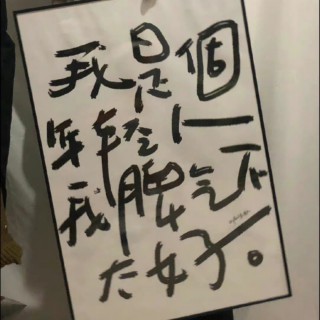 我是個
年輕人一
我脾气不
太好。